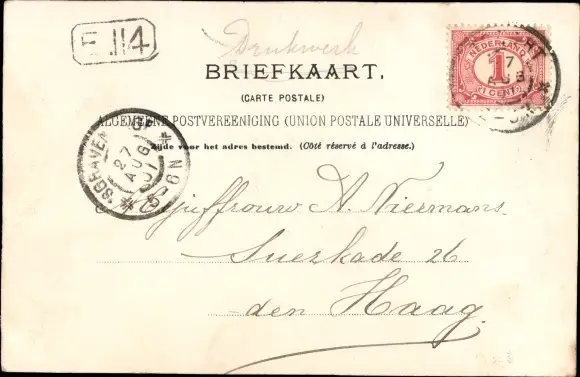 Drukwerk
II 114
BRIEFKAART.
(CARTE POSTALE)
ALGEMEENE POSTVEREENIGING (UNION POSTALE UNIVERSELLE)
Zijde voor het adres bestemd. (Côté réservé à l'adresse.)
NEDERLAND
1
CENT
'SGRAVEN
27 AUG 01
5-6N
Mejuffrouw A. Niermans.
Suezkade 26
den Haag.